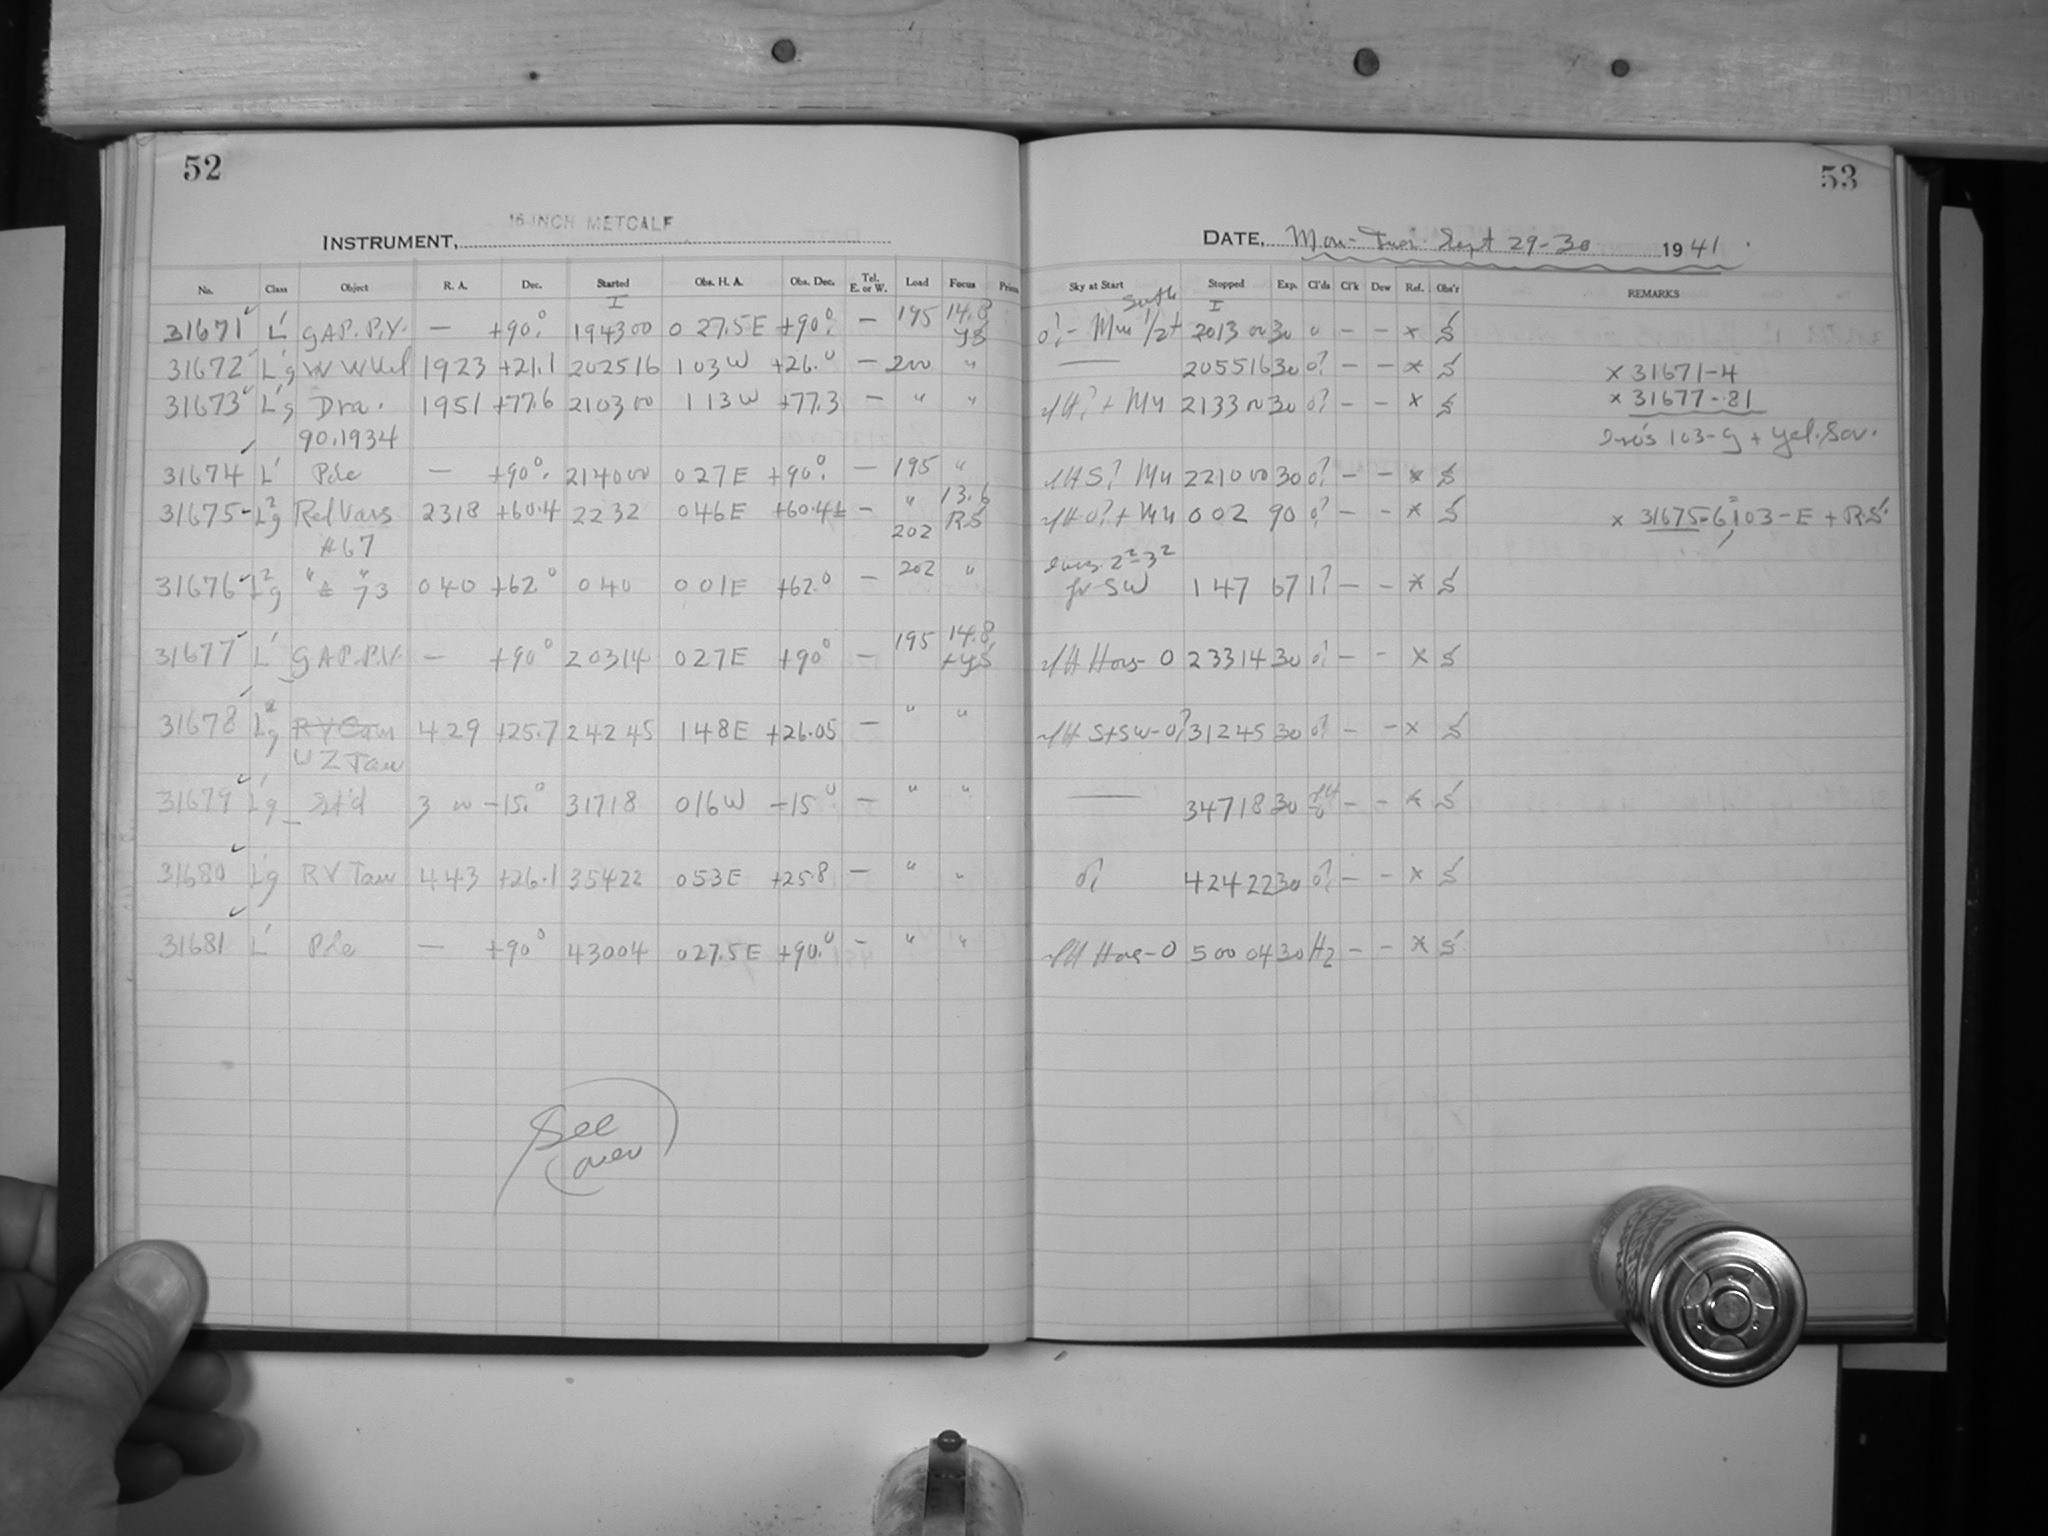 52
16-INCH METCALF
INSTRUMENT,
No. Class Object R. A. Dec. Started Obs. H. A. Obs. Dec. Tel. E. or W. Load Focus
I
31671 L' GAP.P.V. — +90° 194300 0 27.5E +90° — 195 14.8 YS
31672 L'g WWVul 1923 +21.1 202516 1 03W +26.0 — 200 "
31673 L'g Dra. 1951 +77.6 210300 1 13W +77.3 — " "
90.1934
31674 L' Pole — +90° 214000 0 27E +90° — 195 "
31675 L²g RedVars 2318 +60.4 2232 046E +60.4± — " 202 13.6 RS
#67
31676 L²g " # " 73 040 +62° 040 001E +62° — 202 "
31677 L' GAP.P.V. — +90° 20314 027E +90° — 195 14.8 +YS
31678 Lg RVTau 429 +25.7 24245 148E +26.05 — " "
UZ Tau
31679 L'g St'd 3 00 -15.° 31718 016W -15° — " "
31680 L'g RV Tau 443 +26.1 35422 053E +25.8 — " "
31681 L' Pole — +90° 43004 027.5E +90.° — " "
See
over
53
DATE, Mon-Tues. Sept 29-30 1941.
Sky at Start Stopped Exp. Cl'ds Cl'k Dew Ref. Obs'r REMARKS
South I
0?- Mn 1/2+ 20130030 0 — — x S
— 20551630 0? — — x S
x 31671-4
H? + Mn 21330030 0? — — x S
x 31677-81
103-G + Yel. Scr.
HS? Mn 22100030 0? — — x S
H0? + Mn 002 90 0? — — x S
x 31675-6, 103-E + R.S.
2²-3²
fr SW 147 67 1? — — x S
H Hors- 0 2331430 0? — — x S
H S+SW-0? 31245 30 0? — — x S
— 34718 30 — — x S
0? 4242230 0? — — x S
H Hors-0 5000430 Hz — — x S